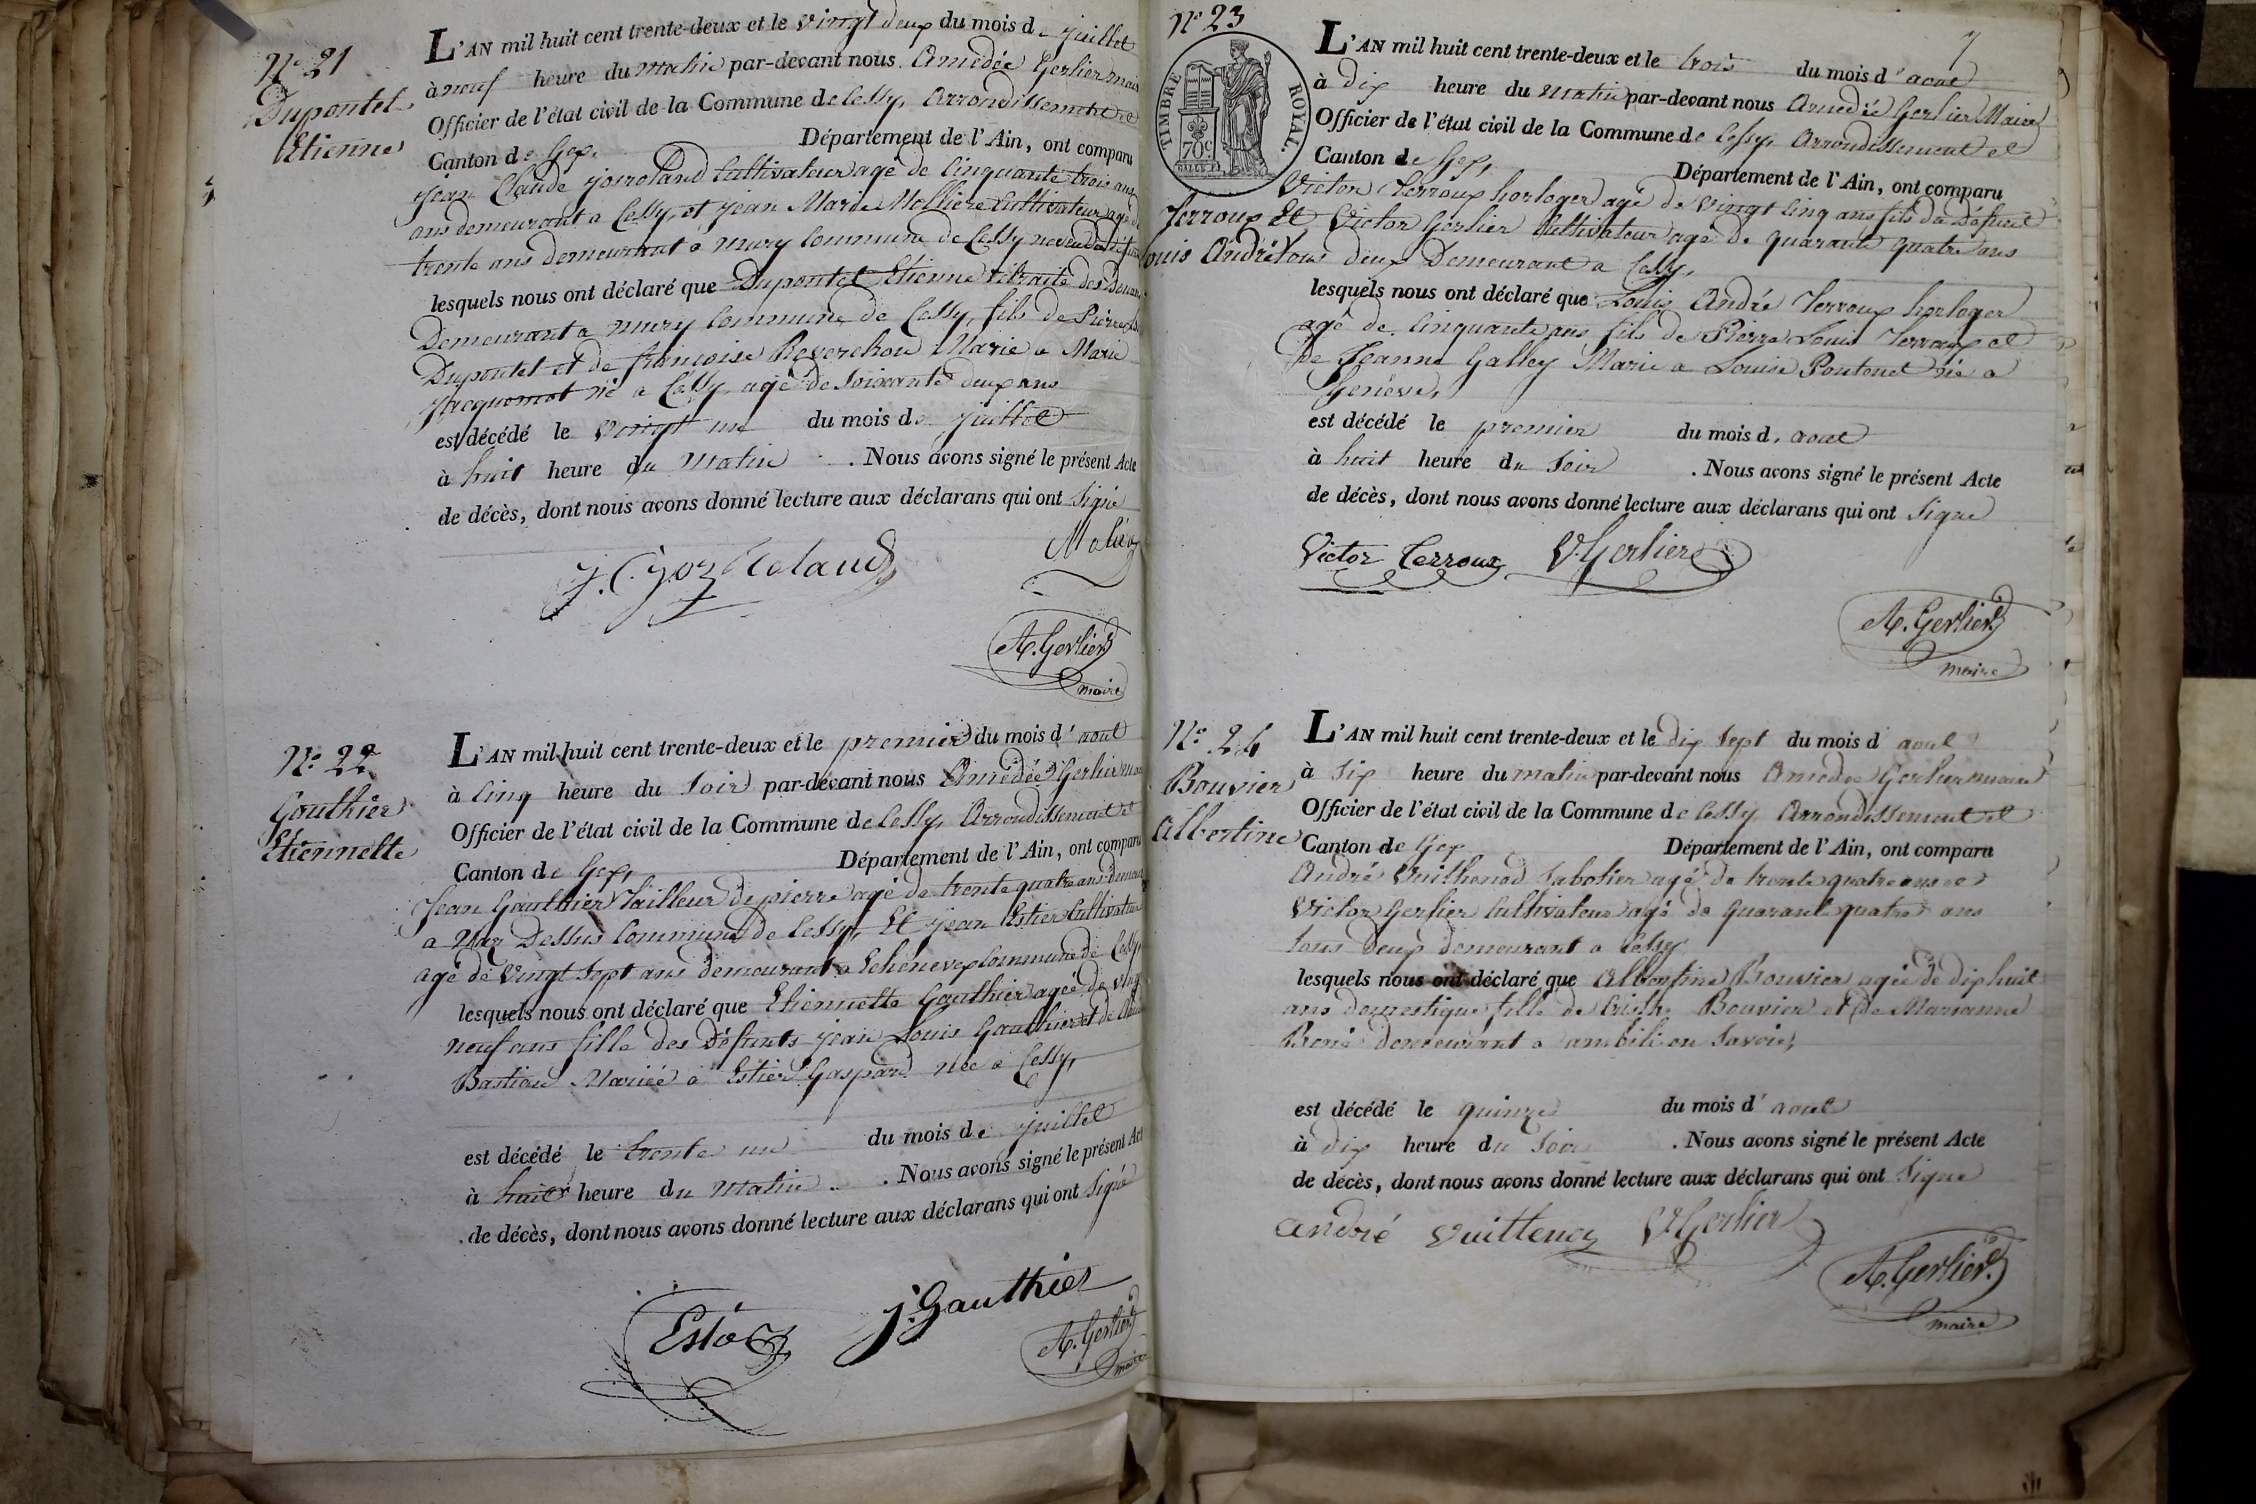 N.° 21
Dupontet
Etienne
L'AN mil huit cent trente-deux et le vingt deux du mois de juillet
à neuf heure du matin par-devant nous Amédée Gerlier maire
Officier de l'état civil de la Commune de Cessy, Arrondissement et
Canton de Gex, Département de l'Ain, ont comparu
jean Claude joz roland Cultivateur agé de Cinquante trois ans
ans demeurant a Cessy, et jean Marie Mollière Cultivateur agé de
trente ans demeurant a mury Commune de Cessy neveu
lesquels nous ont déclaré que Dupontet Etienne retraité des Douanes
Demeurant a mury Commune de Cessy, fils de Pierre
Dupontet et de françoise Reverchon Marie a Marie
jacquemot né a Cessy agé de Soixante deux ans
est décédé le vingt un du mois de juillet
à huit heure du Matin . Nous avons signé le présent Acte
de décès, dont nous avons donné lecture aux déclarans qui ont Signé
J. C. joz Roland
A. Gerlier
maire
N.° 22
Gauthier
Etiennette
L'AN mil huit cent trente-deux et le premier du mois d'aout
à Cinq heure du Soir par-devant nous Amédée Gerlier maire
Officier de l'état civil de la Commune de Cessy, Arrondissement et
Canton de Gex, Département de l'Ain, ont comparu
Jean Gauthier Tailleur de pierre agé de trente quatre ans demeurant
a Dessus Commune de Cessy, Et jean Estier Cultivateur
agé de vingt Sept ans demeurant a Echenevex Commune de Cessy
lesquels nous ont déclaré que Etiennette Gauthier agée de vingt
neuf ans fille des Défunts jean Louis Gauthier et de
Bastian Mariée a Estier Gaspard née a Cessy,
est décédé le trente un du mois de juillet
à huit heure du Matin . Nous avons signé le présent Acte
de décès, dont nous avons donné lecture aux déclarans qui ont Signé
J. Gauthier
A. Gerlier
maire
N.° 23
7
TIMBRE ROYAL.
70c
Terroux
Louis André
L'AN mil huit cent trente-deux et le trois du mois d'aout
à Dix heure du Matin par-devant nous Amédée Gerlier Maire
Officier de l'état civil de la Commune de Cessy, Arrondissement et
Canton de Gex, Département de l'Ain, ont comparu
Victor Terroux horloger agé de vingt Cinq ans fils du Défunt
Et Victor Gerlier Cultivateur agé de quarante quatre ans
tous deux Demeurant a Cessy,
lesquels nous ont déclaré que Louis André Terroux horloger
agé de Cinquante ans, fils de Pierre Louis Terroux et
de Jeanne Galley Marie a Louise Pontonet né a
Genève,
est décédé le premier du mois d'aout
à huit heure du Soir . Nous avons signé le présent Acte
de décès, dont nous avons donné lecture aux déclarans qui ont Signé
Victor Terroux V. Gerlier
A. Gerlier
maire
N.° 24
Bouvier
Albertine
L'AN mil huit cent trente-deux et le dix Sept du mois d'aout
à Six heure du matin par-devant nous Amédée Gerlier maire
Officier de l'état civil de la Commune de Cessy Arrondissement et
Canton de Gex Département de l'Ain, ont comparu
André Vuithenod Sabotier agé de trente quatre ans et
Victor Gerlier Cultivateur agé de quarante quatre ans
tous deux demeurant a Cessy
lesquels nous ont déclaré que Albertine Bouvier agée de dix huit
ans domestique fille de Bouvier et de Marianne
demeurant a ambili en Savoie,
est décédé le quinze du mois d'aout
à dix heure du Soir . Nous avons signé le présent Acte
de décès, dont nous avons donné lecture aux déclarans qui ont Signé
André Vuittenoz V. Gerlier
A. Gerlier
maire